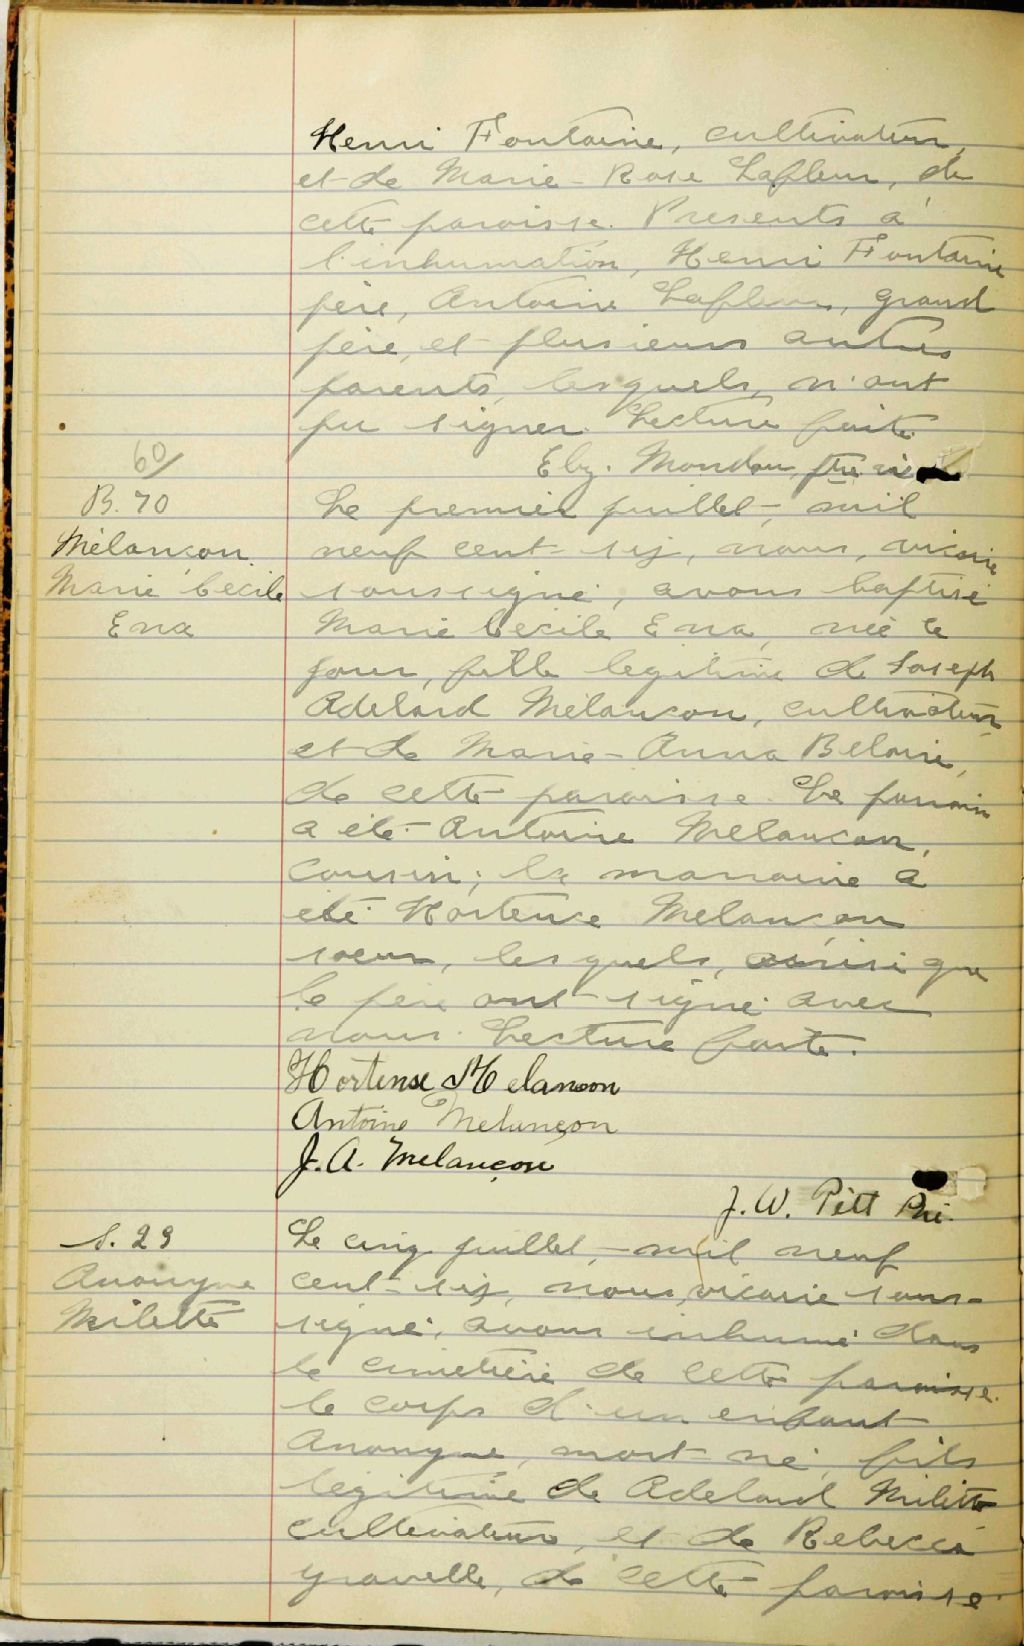 Henri Fontaine, cultivateur,
et de Marie-Rose Lafleur, de
cette paroisse. Présents à
l'inhumation, Henri Fontaine
père, Antoine Lafleur, grand
père, et plusieurs autres
parents, lesquels, n'ont
pu signer. Lecture faite.
Elz. Mondou, ptre
60/
B. 70
Mélançon
Marie Cécile
Ena
Le premier juillet, mil
neuf cent-six, nous, vicaire
soussigné, avons baptisé
Marie Cécile Ena, née ce
jour, fille légitime de Joseph
Adélard Mélançon, cultivateur,
et de Marie-Anna
de cette paroisse. Le parrain
a été Antoine Mélançon,
cousin; la marraine a
été Hortense Mélançon
soeur, lesquels, ainsi que
le père ont signé avec
nous. Lecture faite.
Hortense Melancon
Antoine Melançon
J. A. Melançon
J. W. Pitt Ptre.
S. 29
Anonyme
Milette
Le cinq juillet, mil neuf
cent-six, nous, vicaire sous-
signé, avons inhumé dans
le cimetière de cette paroisse.
le corps d'un enfant
Anonyme, mort-né, fils
légitime de Adélard Milette
cultivateur, et de Rebecca
gravelle, de cette paroisse.